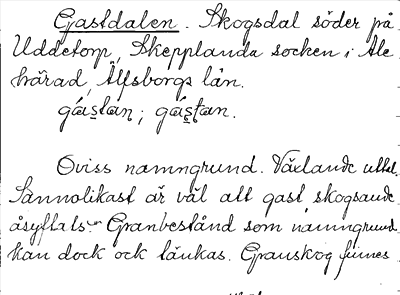 Gastdalen. Skogsdal söder på
Uddetorp, Skepplanda socken i Ale
härad, Älfsborgs län.
gástan; gástan.
Oviss namngrund. Växlande uttal.
Sannolikast är väl att gast, skogsande
åsyftats. Granbestånd som namngrund
kan dock ock tänkas. Granskog finnes